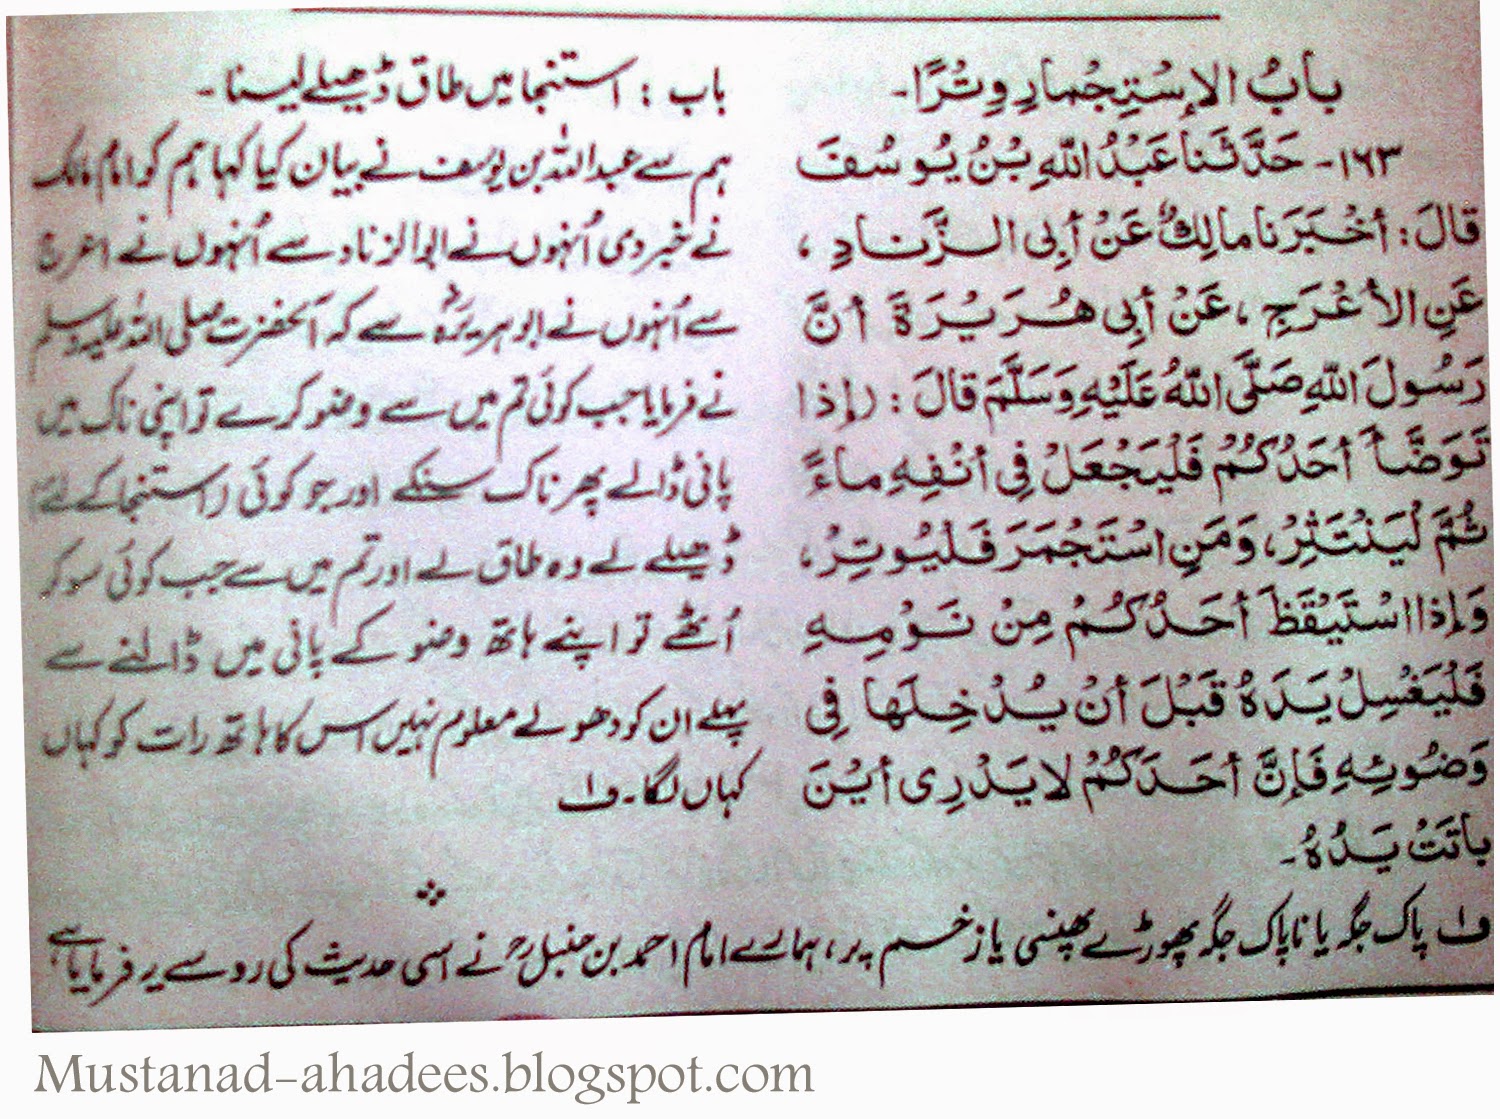 بابُ الإسْتِجْمارِ وِتْرًا۔
۱۶۳- حَدَّثَنا عَبْدُ اللّٰهِ بْنُ يُوسُفَ
قالَ: أخْبَرَنا مالِكٌ عَنْ أبِى الزَّنادِ،
عَنِ الأعْرَجِ، عَنْ أبِى هُرَيْرَةَ أنَّ
رَسُولَ اللّٰهِ صَلَّى اللّٰهُ عَلَيْهِ وَسَلَّمَ قالَ: (إذا
تَوَضَّأ أحَدُكُمْ فَلْيَجْعَلْ فِى أنْفِهِ ماءً
ثُمَّ لْيَنْتَثِرْ، وَمَنِ اسْتَجْمَرَ فَلْيُوتِرْ،
وَإذا اسْتَيْقَظَ أحَدُكُمْ مِنْ نَوْمِهِ
فَلْيَغْسِلْ يَدَهُ قَبْلَ أنْ يُدْخِلَها فِى
وَضُوئِهِ فَإنَّ أحَدَكُمْ لا يَدْرِى أيْنَ
باتَتْ يَدُهُ۔
باب : استنجا میں طاق ڈھیلے لینا۔
ہم سے عبداللہ بن یوسف نے بیان کیا کہا ہم کو امام مالک
نے خبر دی اُنہوں نے ابوالزناد سے اُنہوں نے اعرج
سے اُنہوں نے ابوہریرہؓ سے کہ آنحضرت صلی اللہ علیہ وسلم
نے فرمایا جب کوئی تم میں سے وضو کرے تو اپنی ناک میں
پانی ڈالے پھر ناک سنکے اور جو کوئی (استنجا کے لئے)
ڈھیلے لے وہ طاق لے اور تم میں سے جب کوئی سو کر
اُٹھے تو اپنے ہاتھ وضو کے پانی میں ڈالنے سے
پہلے ان کو دھولے معلوم نہیں اس کا ہاتھ رات کو کہاں
کہاں لگا۔ ف۱
ف۱ پاک جگہ یا ناپاک جگہ پھوڑے پھنسی یا زخم پر، ہمارے امام احمد بن حنبلؒ نے اسی حدیث کی رو سے یہ فرمایا ہے
Mustanad-ahadees.blogspot.com